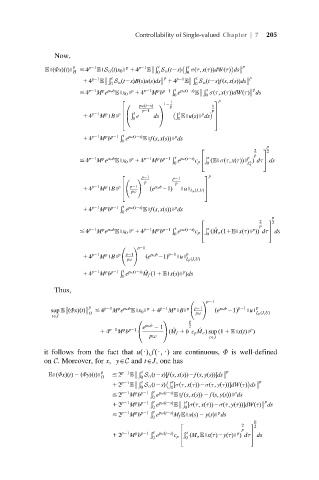 Controllability of Single-valued Chapter | 7 205
Now,
E‖(Φx)(t)‖^p_H ≤ 4^{p−1}E‖S_α(t)x_0‖^p + 4^{p−1}E‖∫_0^t S_α(t−s)[∫_0^s σ(τ, x(τ))dW(τ)]ds‖^p
+ 4^{p−1}E‖∫_0^t S_α(t−s)B(s)u(s)ds‖^p + 4^{p−1}E‖∫_0^t S_α(t−s)f(s, x(s))ds‖^p
≤ 4^{p−1}M^p e^{pωb}E‖x_0‖^p + 4^{p−1}M^p b^{p−1}∫_0^t e^{pω(t−s)}E‖∫_0^s σ(τ, x(τ))dW(τ)‖^p ds
+ 4^{p−1}M^p‖B‖^p [(∫_0^t e^{pω(t−s)/(p−1)} ds)^{1−1/p} (∫_0^t E‖u(s)‖^p ds)^{1/p}]^p
+ 4^{p−1}M^p b^{p−1}∫_0^t e^{pω(t−s)}E‖f(s, x(s))‖^p ds
≤ 4^{p−1}M^p e^{pωb}E‖x_0‖^p + 4^{p−1}M^p b^{p−1}∫_0^t e^{pω(t−s)}c_p [∫_0^s (E‖σ(τ, x(τ))‖^p_{L_2^0})^{2/p} dτ]^{p/2} ds
+ 4^{p−1}M^p‖B‖^p [((p−1)/(pω))^{(p−1)/p} (e^{pωb}−1)^{(p−1)/p} ‖u‖_{L_p(J,U)}]^p
+ 4^{p−1}M^p b^{p−1}∫_0^t e^{pω(t−s)}E‖f(s, x(s))‖^p ds
≤ 4^{p−1}M^p e^{pωb}E‖x_0‖^p + 4^{p−1}M^p b^{p−1}∫_0^t e^{pω(t−s)}c_p [∫_0^s (M̂_σ(1+E‖x(τ)‖^p))^{2/p} dτ]^{p/2} ds
+ 4^{p−1}M^p‖B‖^p ((p−1)/(pω))^{p−1} (e^{pωb}−1)^{p−1}‖u‖^p_{L_p(J,U)}
+ 4^{p−1}M^p b^{p−1}∫_0^t e^{pω(t−s)}M̂_f(1+E‖x(s)‖^p)ds
Thus,
sup_{t∈J} E‖(Φx)(t)‖^p_H ≤ 4^{p−1}M^p e^{pωb}E‖x_0‖^p + 4^{p−1}M^p‖B‖^p ((p−1)/(pω))^{p−1} (e^{pωb}−1)^{p−1}‖u‖^p_{L_p(J,U)}
+ 4^{p−1}M^p b^{p−1} ((e^{pωb}−1)/(pω)) (M̂_f + b^{p/2} c_p M̂_σ) sup_{t∈J} (1+E‖x(t)‖^p)
it follows from the fact that u(·),f(·,·) are continuous, Φ is well-defined
on C. Moreover, for x, y∈C and t∈J, one has
E‖(Φx)(t) − (Φy)(t)‖^p_H ≤ 2^{p−1}E‖∫_0^t S_α(t−s)[f(s, x(s))−f(s, y(s))]ds‖^p
+ 2^{p−1}E‖∫_0^t S_α(t−s)(∫_0^s [σ(τ, x(τ))−σ(τ, y(τ))]dW(τ))ds‖^p
≤ 2^{p−1}M^p b^{p−1}∫_0^t e^{pω(t−s)}E‖f(s, x(s)) − f(s, y(s))‖^p ds
+ 2^{p−1}M^p b^{p−1}∫_0^t e^{pω(t−s)}E‖∫_0^s [σ(τ, x(τ))−σ(τ, y(τ))]dW(τ)‖^p ds
≤ 2^{p−1}M^p b^{p−1}∫_0^t e^{pω(t−s)}M_f E‖x(s) − y(s)‖^p ds
+ 2^{p−1}M^p b^{p−1}∫_0^t e^{pω(t−s)}c_p [∫_0^s (M_σ E‖x(τ)−y(τ)‖^p)^{2/p} dτ]^{p/2} ds